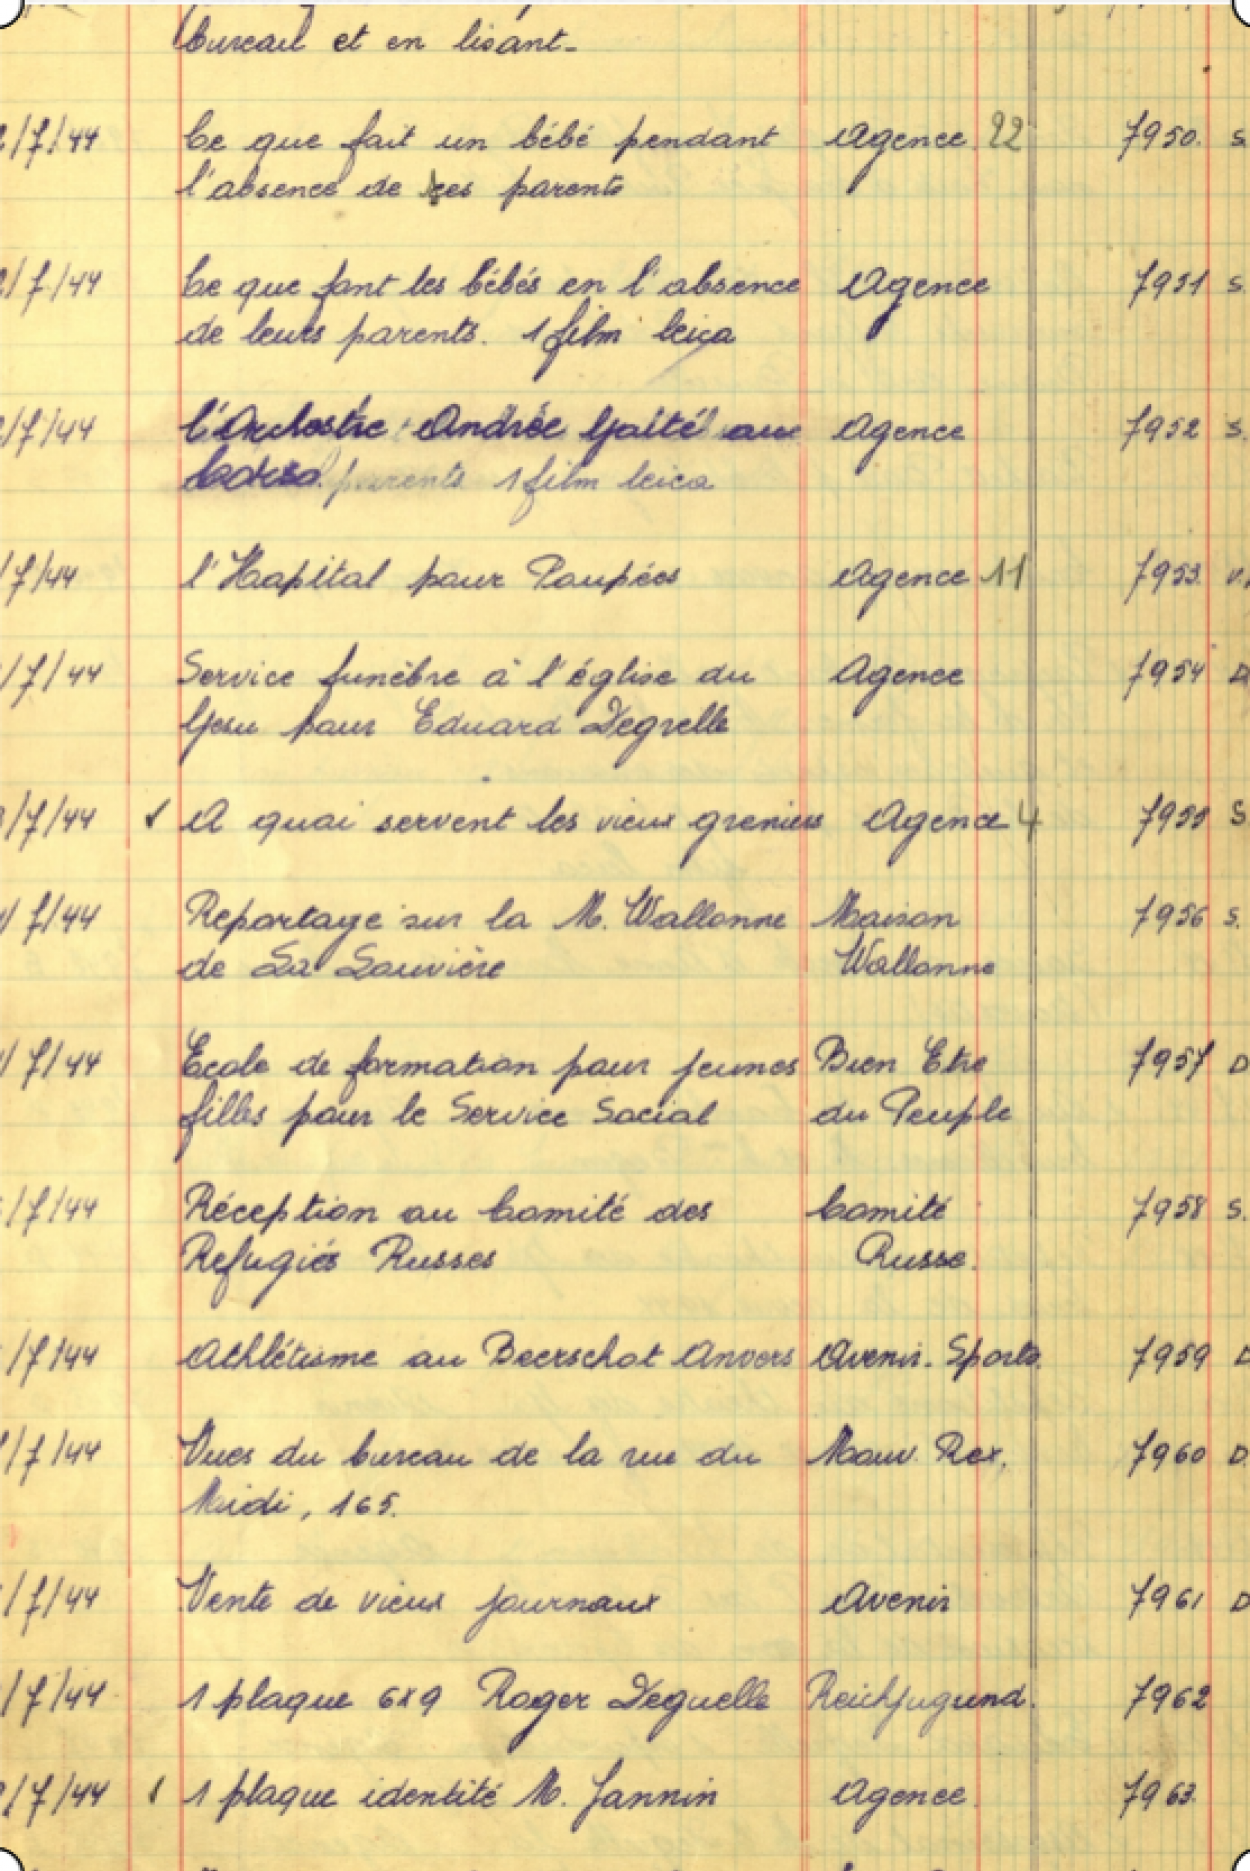 bureau et en lisant-
/7/44 Ce que fait un bébé pendant Agence 22 7950. S
l'absence de ses parents
/7/44 Ce que font les bébés en l'absence Agence 7951 S.
de leurs parents. 1 film leica
/7/44 l'Orchestre Andrée Gaîté au Agence 7952 S.
parents 1 film leica
/7/44 l'Hopital pour Poupées Agence 11 7953.
/7/44 Service funèbre à l'église du Agence 7954 D
Gesu pour Eduard Degrelle
/7/44 A quoi servent les vieux greniers Agence 4 7955 S
/7/44 Reportage sur la M. Wallonne Maison 7956 S.
de La Louvière Wallonne
/7/44 Ecole de formation pour jeunes Bien Etre 7957 D
filles pour le Service Social du Peuple
/7/44 Réception au Comité des Comité 7958 S.
Refugiés Russes Russe.
/7/44 Athlétisme au Beerschot Anvers Avenir. Sports. 7959 D
/7/44 Vues du bureau de la rue du Mouv. Rex. 7960 D.
Midi, 165.
/7/44 Vente de vieux journaux Avenir 7961 D
/7/44 1 plaque 6x9 Roger Deguelle Reichjugund. 7962
/7/44 1 1 plaque identité M. Jannin Agence. 7963.